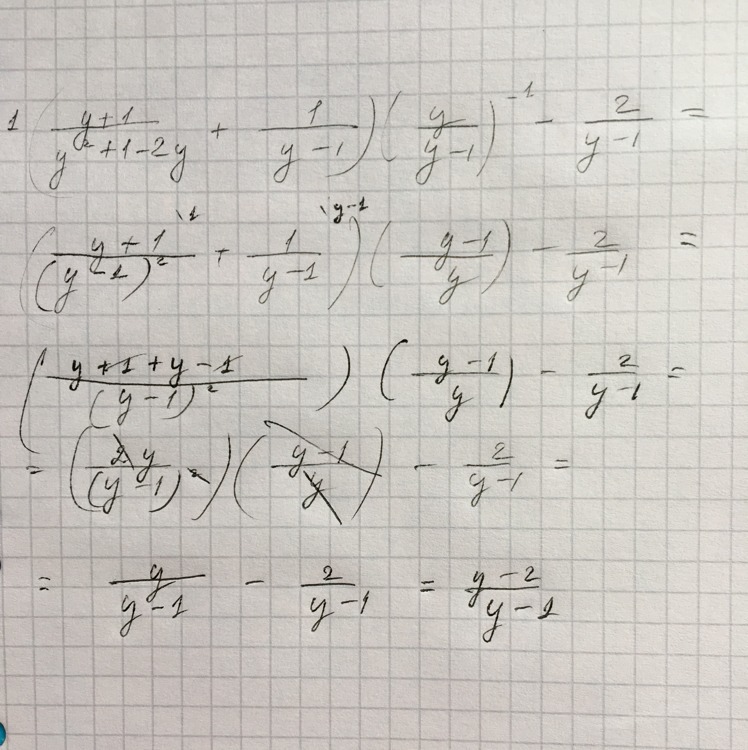 1 ( (y+1)/(y²+1-2y) + 1/(y-1) ) ( y/(y-1) )⁻¹ - 2/(y-1) =
( (y+1)/(y-1)² \1 + 1/(y-1) \y-1 ) ( (y-1)/y ) - 2/(y-1) =
( (y+1+y-1)/(y-1)² ) ( (y-1)/y ) - 2/(y-1) =
= ( 2y/(y-1)² ) ( (y-1)/y ) - 2/(y-1) =
= y/(y-1) - 2/(y-1) = (y-2)/(y-1)